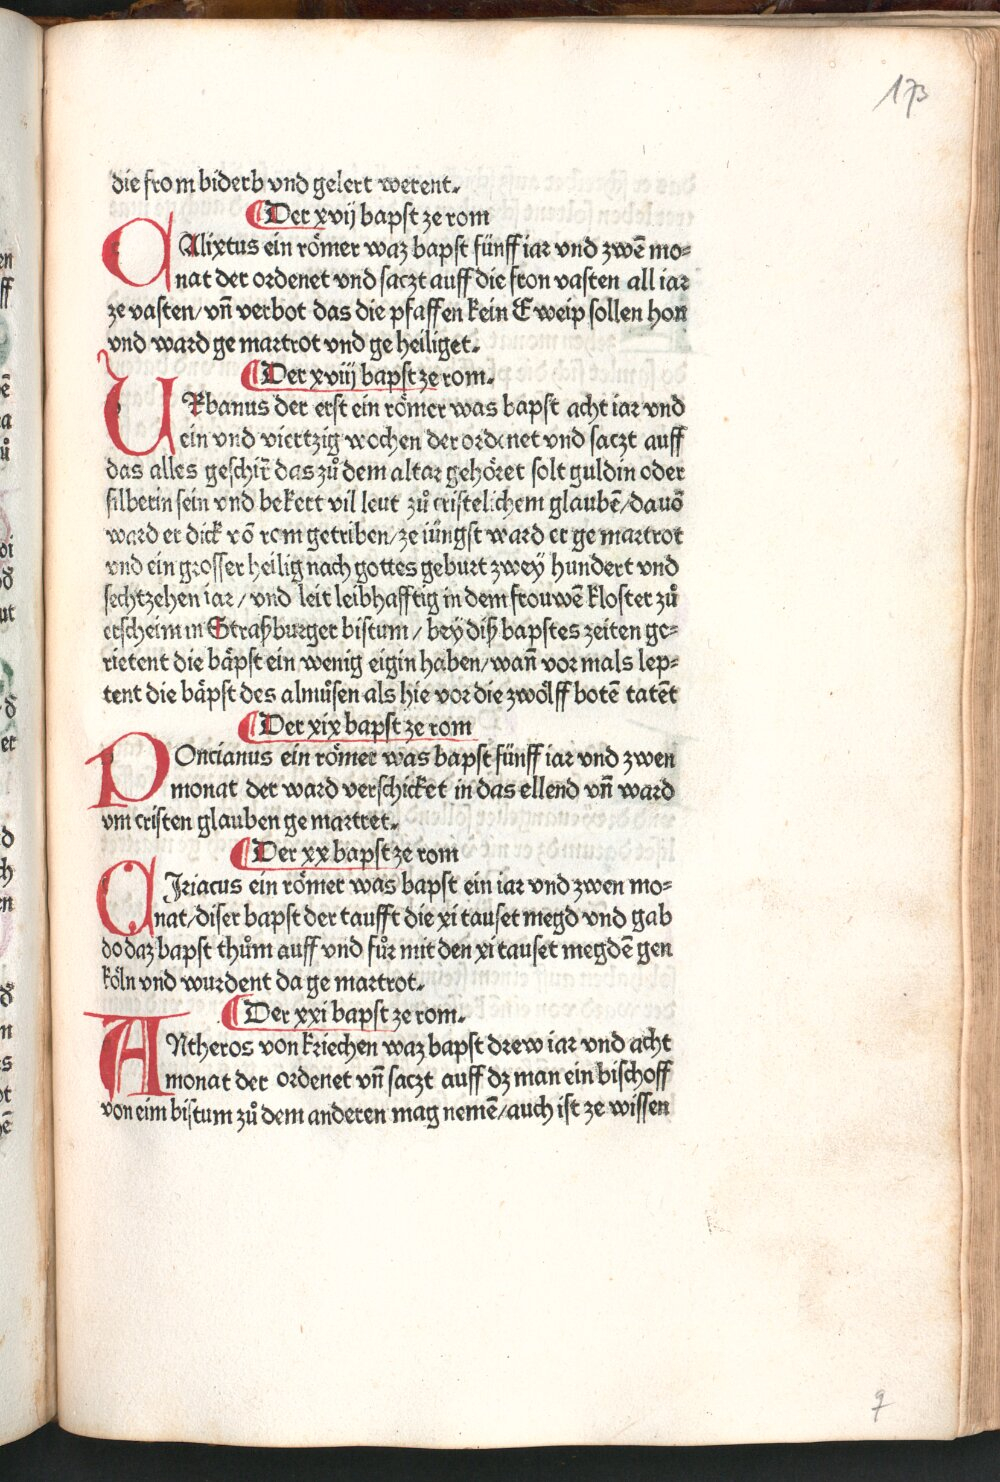 173
die from biderb vnd gelert werent.
Der xvij bapst ze rom
CAlixtus ein römer waz bapst fünff iar vnd zwē mo=
nat der ordenet vnd saczt auff die fron vasten all iar
ze vasten/vn̄ verbot das die pfaffen kein Eweip sollen hon
vnd ward ge martrot vnd ge heiliget.
Der xviij bapst ze rom.
URbanus der erst ein römer was bapst acht iar vnd
ein vnd viertzig wochen der ordenet vnd saczt auff
das alles geschir̄ das zů dem altar gehöret solt guldin oder
silberin sein vnd bekert vil leut zů cristelichem glaubē/dauō
ward er dick vō rom getriben/ze iüngst ward er ge martrot
vnd ein grosser heilig nach gottes geburt zwey hundert vnd
sechtzehen iar/vnd leit leibhafftig in dem frouwē kloster zů
erscheim in Straßburger bistum/bey diß bapstes zeiten ge=
rietent die bäpst ein wenig eigin haben/wan̄ vor mals lep=
tent die bäpst des almůsen als hie vor die zwölff botē tatēt
Der xix bapst ze rom
POncianus ein römer was bapst fünff iar vnd zwen
monat der ward verschicket in das ellend vn̄ ward
vm cristen glauben ge martret.
Der xx bapst ze rom
CIriacus ein römer was bapst ein iar vnd zwen mo=
nat/diser bapst der taufft die xi tauset megd vnd gab
do daz bapst thům auff vnd fůr mit den xi tauset megdē gen
köln vnd wurdent da ge martrot.
Der xxi bapst ze rom.
ANtheros von kriechen waz bapst drew iar vnd acht
monat der ordenet vn̄ saczt auff dz man ein bischoff
von eim bistum zů dem anderen mag nemē/auch ist ze wissen